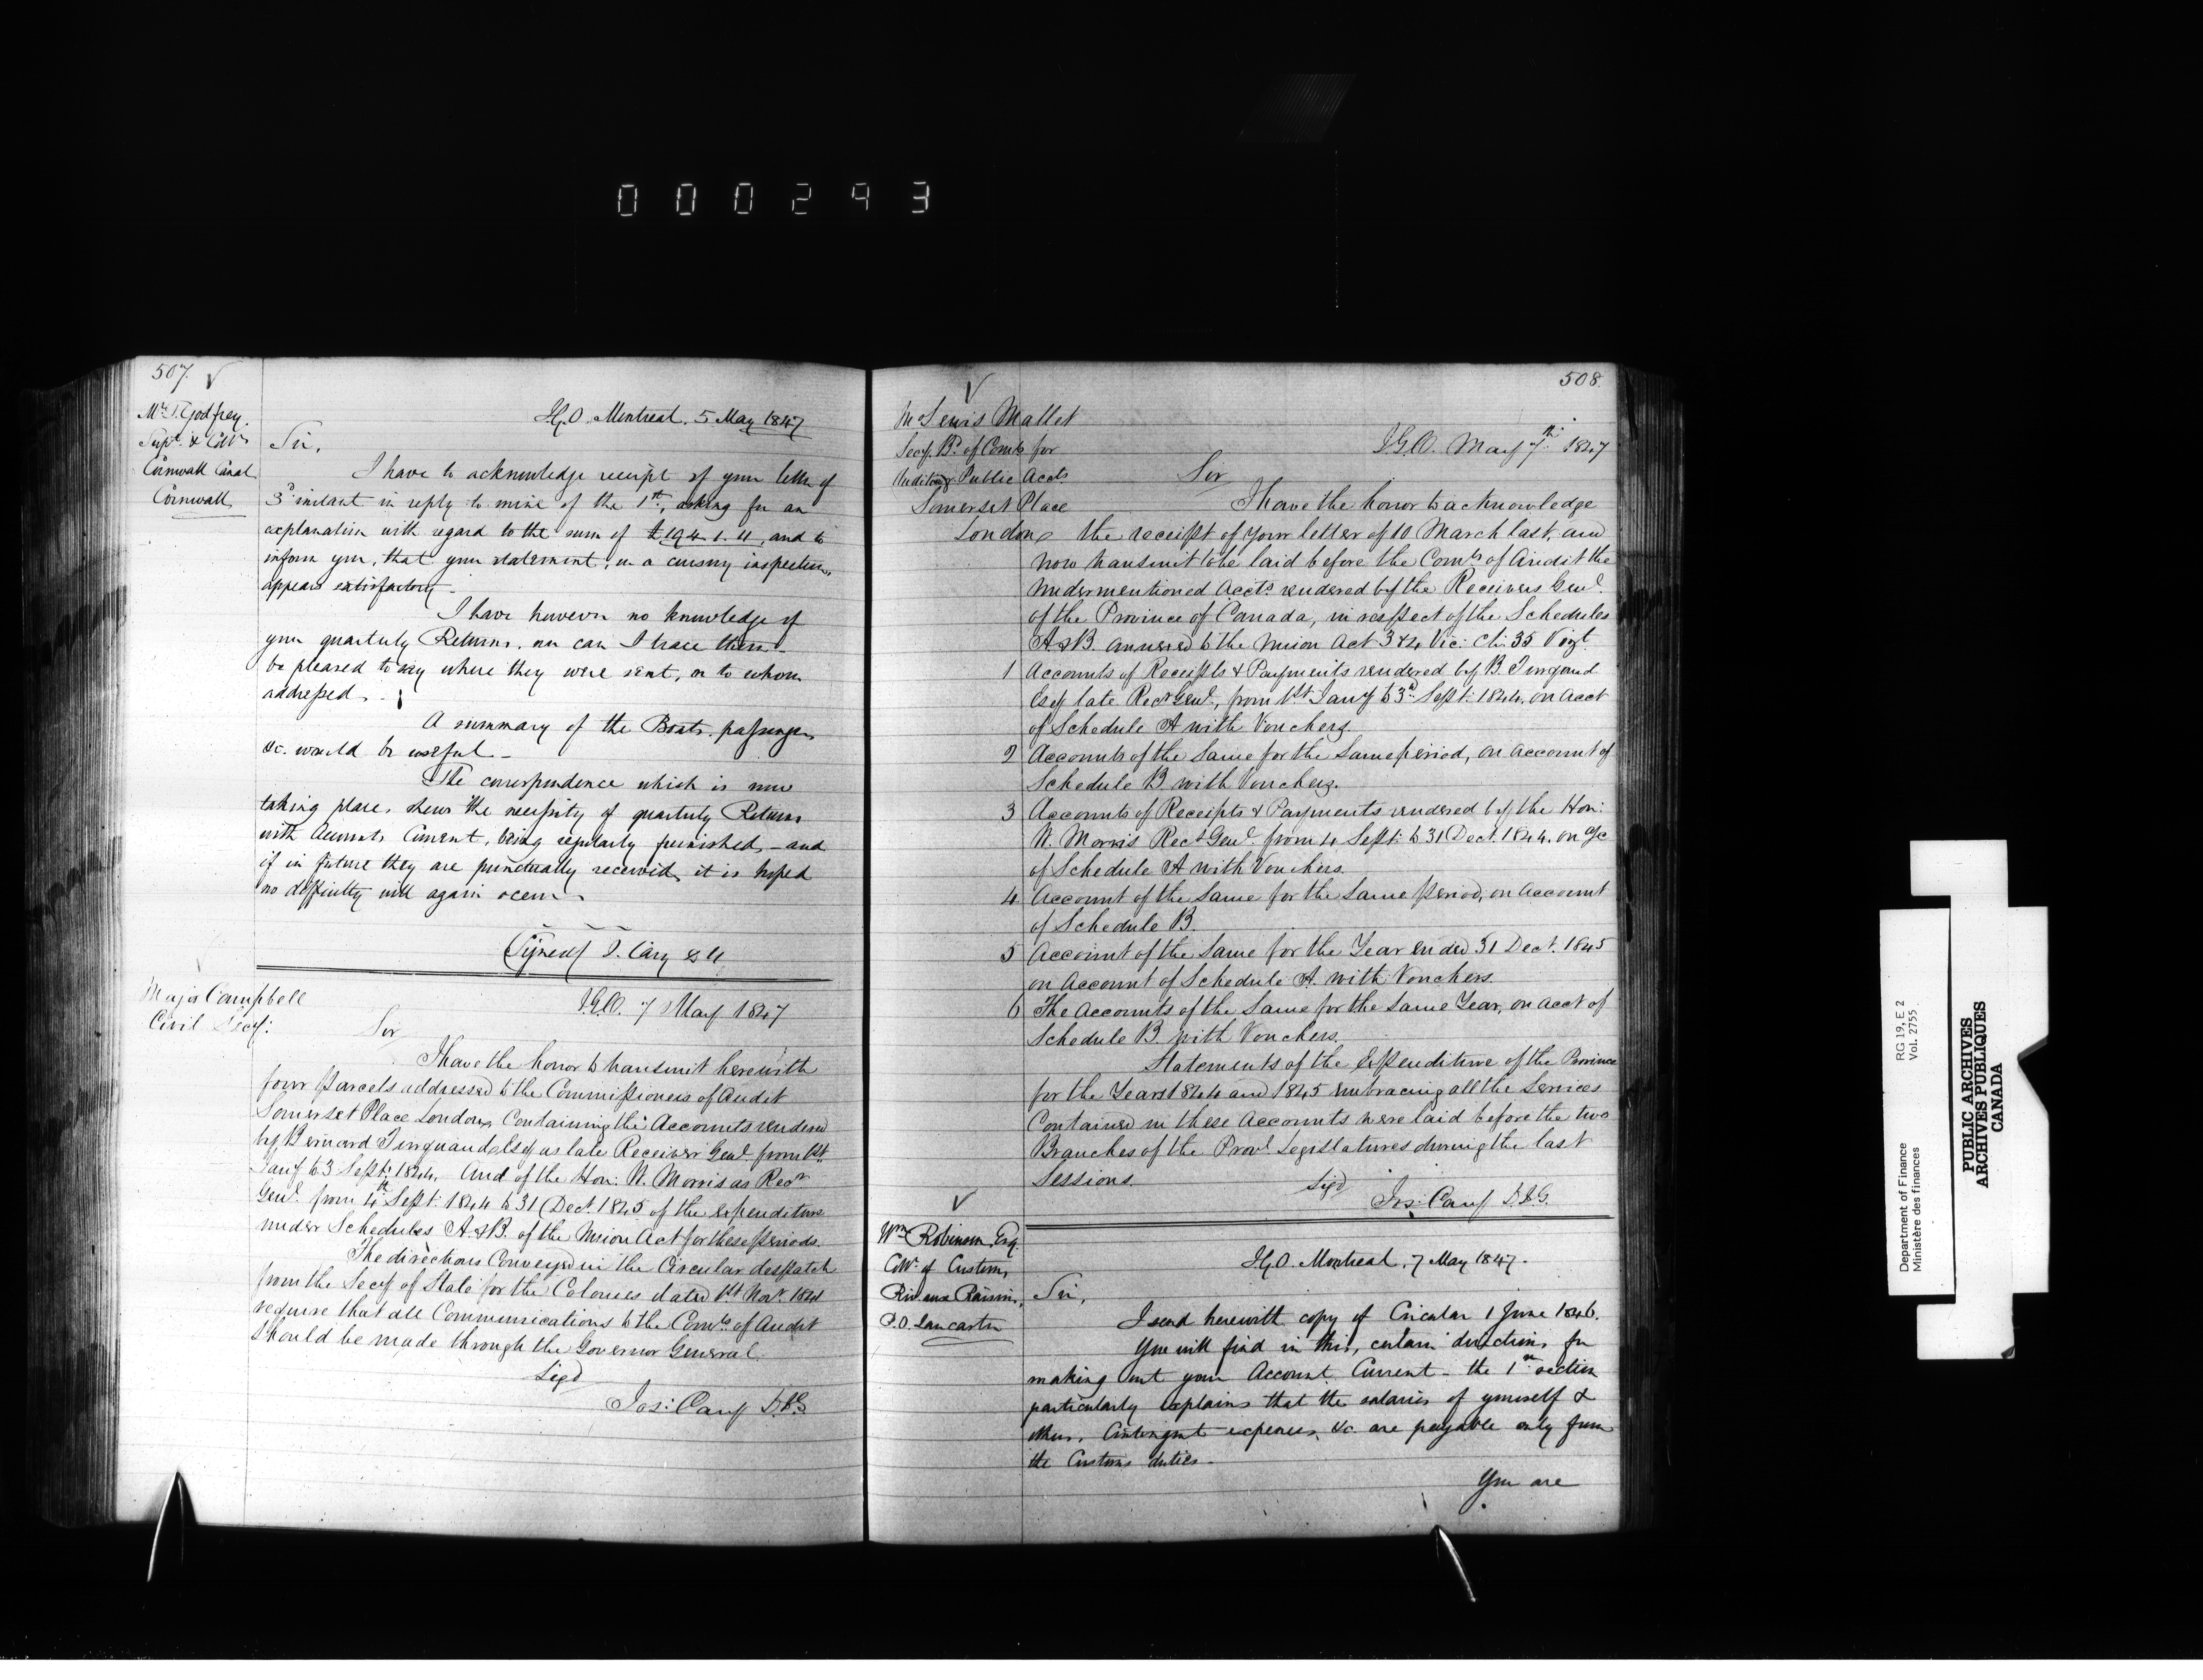 000293
507.
Mr T. Godfrey.
Supt. & Collr
Cornwall Canal
Cornwall
I.G.O. Montreal. 5 May 1847
Sir,
I have to acknowledge receipt of your letter of
3d instant in reply to mine of the 1st, asking for an
explanation with regard to the sum of £194.1.11, and to
inform you, that your statement, on a cursory inspection,
appears satisfactory.
I have however no knowledge of
your quarterly Returns, nor can I trace them -
be pleased to say where they were sent, or to whom
addressed. -
A summary of the Boats, passengers
&c. would be useful -
The correspondence which is now
taking place, shews the necessity of quarterly Returns
with Accounts Current, being regularly furnished, - and
if in future they are punctually received, it is hoped
no difficulty will again occur
(Signed) J. Cary
Major Campbell
Civil Secy:
I.G.O. 7 May 1847
Sir
I have the honor to transmit herewith
four parcels addressed to the Commissioners of Audit
Somerset Place London, Containing the Accounts rendered
by Bernard Turquand Esq as late Receiver Genl. from 1st
Jany to 3 Sept: 1844, And of the Hon: W. Morris as Recr
Genl. from 4th Sept: 1844 to 31 Dect. 1845 of the expenditure
under Schedules A & B. of the Union Act for these periods.
The directions Conveyed in the Circular despatch
from the Secy of State for the Colonies dated 1st Novr. 1841
require that all Communications to the Comrs. of Audit
should be made through the Governor General
Sigd
Jos: Cary D.I.G.
508.
Mr Lewis Mallet
Secy. Bd. of Comrs for
Auditing Public Accts
Somerset Place
London
I.G.O. May 7th. 1847
Sir
I have the honor to acknowledge
the receipt of your letter of 10 March last, and
now transmit to be laid before the Comrs of Audit the
undermentioned Accts. rendered by the Receivers Genl.
of the Province of Canada, in respect of the Schedules
A & B. annexed to the Union Act 3 & 4 Vic: Ch: 35 Vizt.
1 Accounts of Receipts & Payments rendered by B. Turquand
Esq late Recr Genl., from 1st Jany to 3d. Sept: 1844, on Acct
of Schedule A with Vouchers.
2 Accounts of the Same for the Same period, on Account of
Schedule B with Vouchers.
3 Accounts of Receipts & Payments rendered by the Hon:
W. Morris Recr Genl. from 4 Sept: to 31 Dect. 1844. on a/c
of Schedule A with Vouchers.
4 Account of the Same for the Same period, on Account
of Schedule B.
5 Account of the Same for the Year ended 31 Dect. 1845
on Account of Schedule A. with Vouchers.
6 The Accounts of the Same for the Same Year, on Acct of
Schedule B. with Vouchers.
Statements of the Expenditure of the Province
for the Years 1844 and 1845 embracing all the Services
Contained in these Accounts were laid before the two
Branches of the Provl Legislatures during the last
Sessions.
Sigd
Jos: Cary D.I.G.
Wm Robinson, Esq.
Collr. of Customs,
Riv. aux Raisins,
P.O. Lancaster
I.G.O. Montreal, 7 May 1847.
Sir,
I send herewith copy of Circular 1 June 1846.
You will find in this, certain directions for
making out your Account Current - the 1st section
particularly explains that the salaries of yourself &
others, Contingent expenses, &c. are payable only from
the Customs duties -
You are
Department of Finance
Ministère des finances
RG 19, E 2
Vol. 2755
PUBLIC ARCHIVES
ARCHIVES PUBLIQUES
CANADA